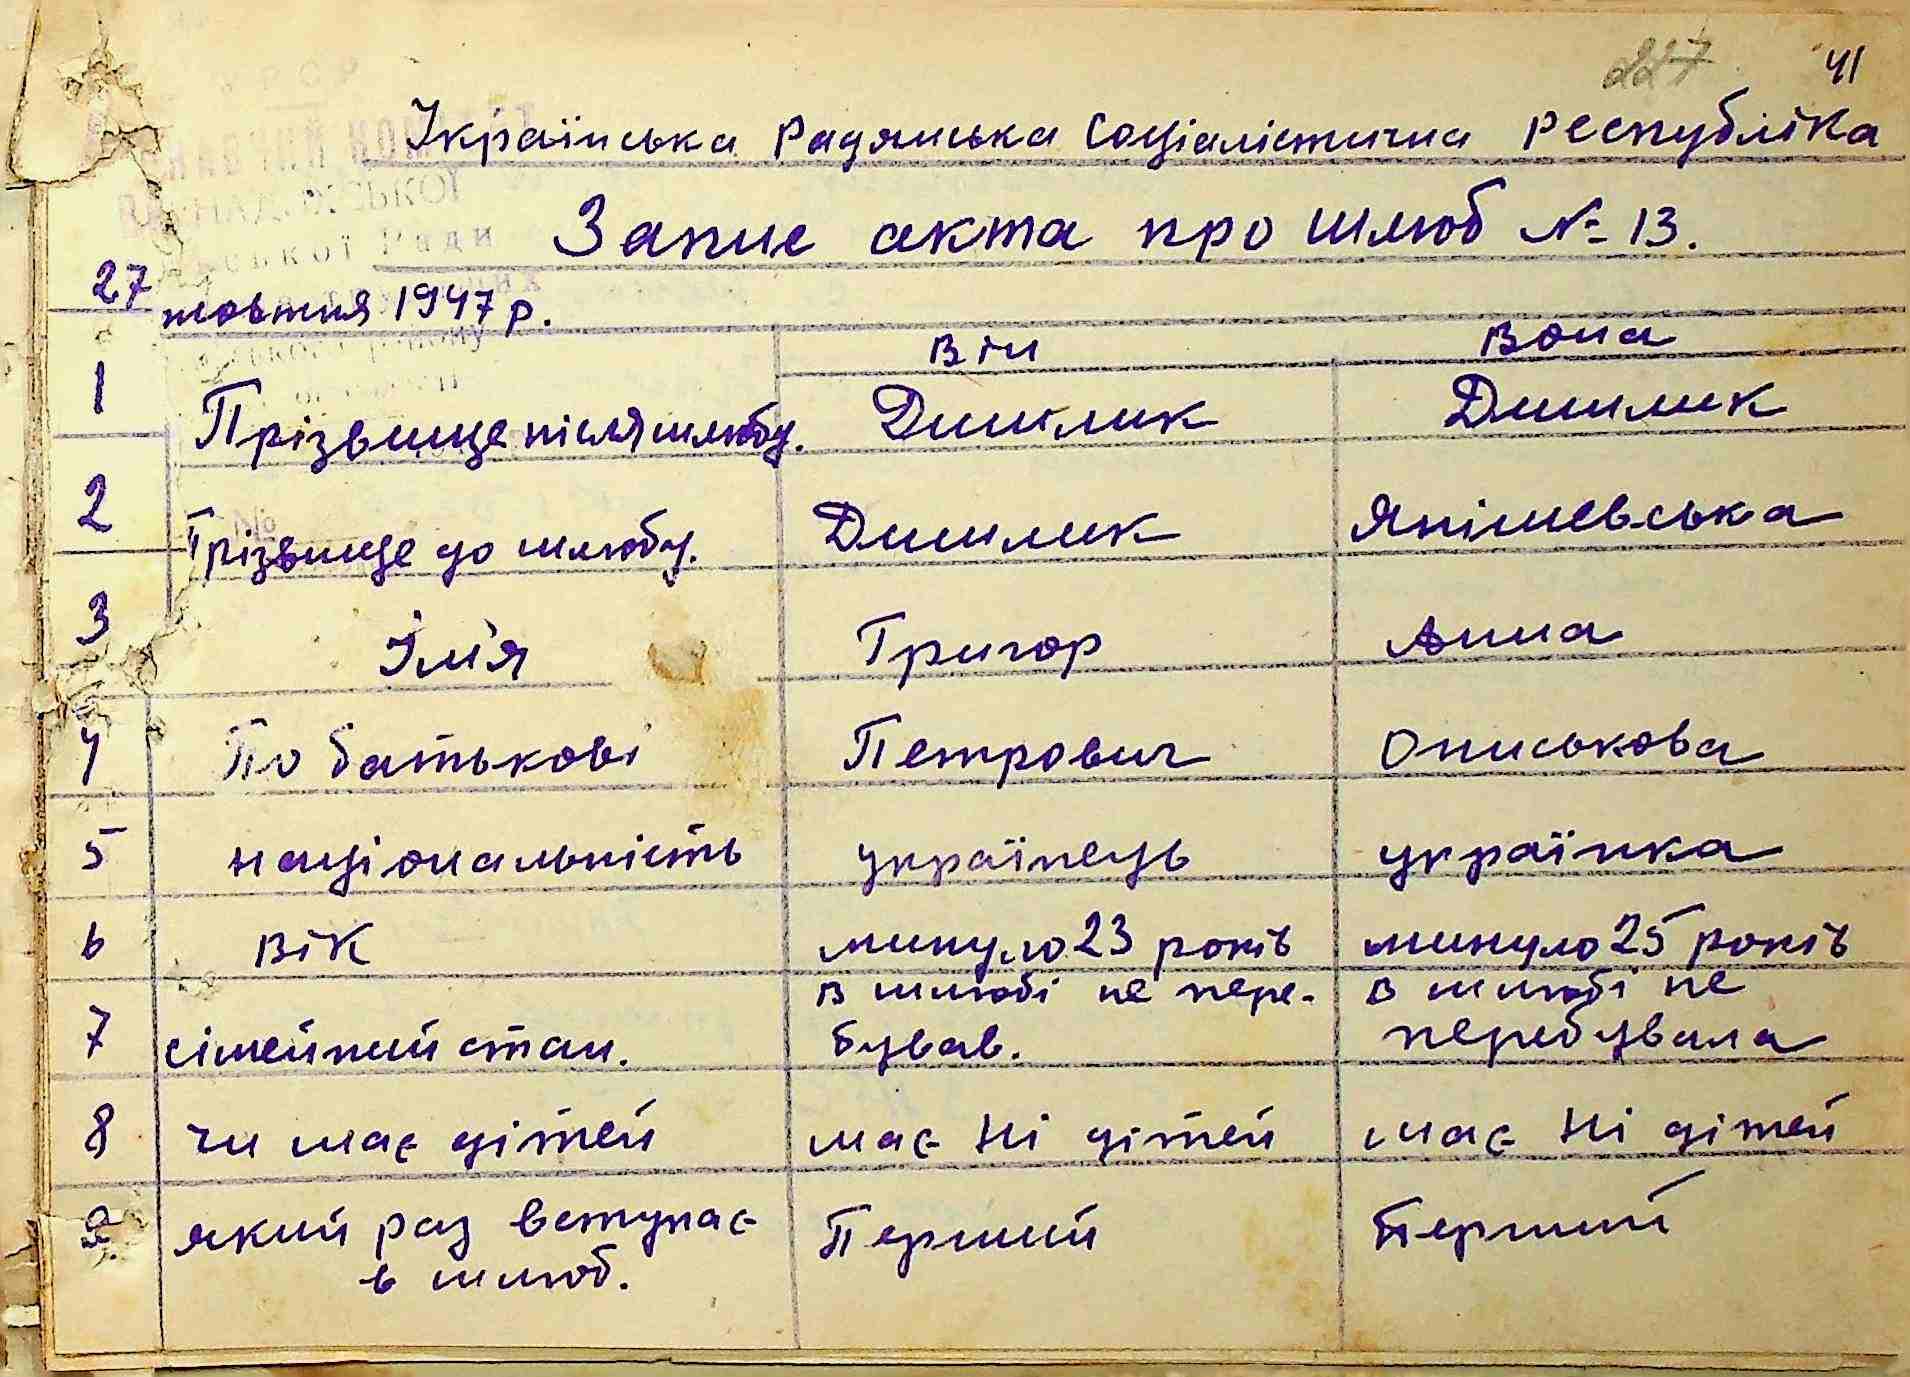 227 41
Українська Радянська Соціалістична республіка
Запис акта про шлюб № 13.
27 жовтня 1947 р.
він вона
1 Прізвище після шлюбу. Дишлик Дишлик
2 Прізвище до шлюбу. Дишлик Янішевська
3 Ім'я Григор Анна
4 По батькові Петрович Ониськова
5 національність українець українка
6 вік минуло 23 років минуло 25 років
7 сімейний стан. в шлюбі не пере- в шлюбі не
бував. перебувала
8 чи має дітей має Ні дітей має Ні дітей
9. який раз вступає Перший Перший
в шлюб.